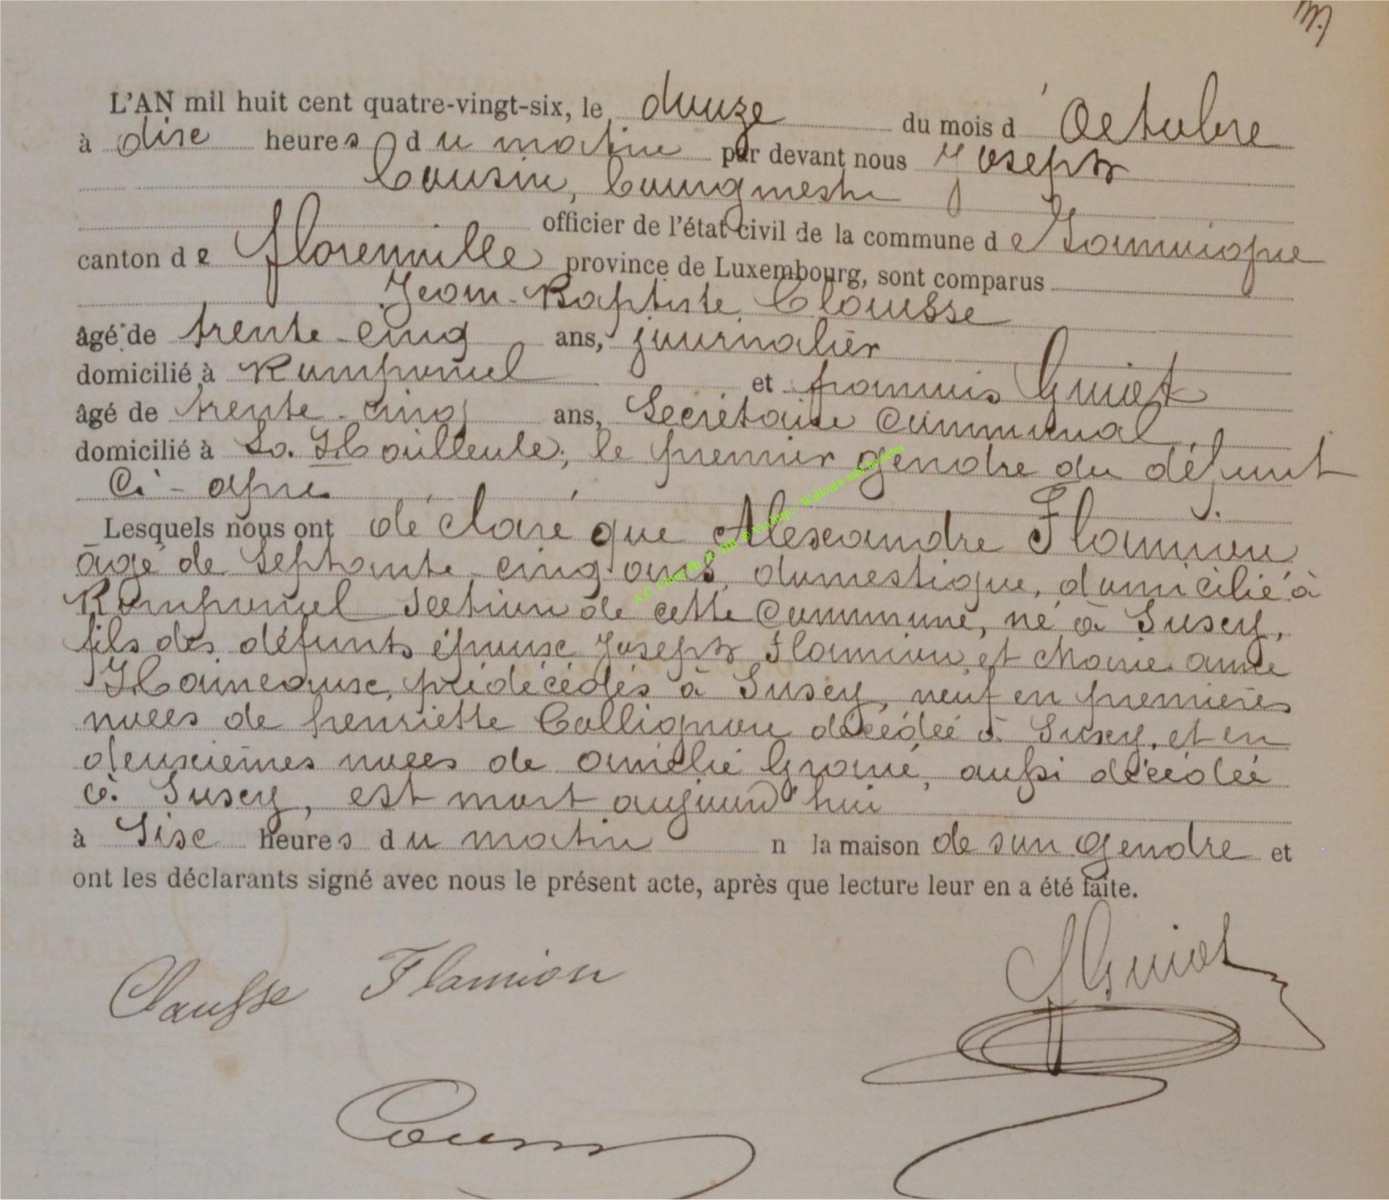 L'AN mil huit cent quatre-vingt-six, le douze du mois d'Octobre
à dix heures du matin par devant nous Joseph
Cousin, bourgmestre
officier de l'état civil de la commune de Jamoigne
canton de florenville province de Luxembourg, sont comparus
Jean-Baptiste Clausse
âgé de trente-cinq ans, journalier
domicilié à Romponcel et francois Guiot
âgé de trente-cinq ans, Secrétaire Communal,
domicilié à La Hailleule, le premier gendre du défunt
Ci-après
Lesquels nous ont déclaré que Alexandre Flamion
âgé de septante cinq ans, domestique, domicilié à
Romponcel section de cette commune, né à Suxy,
fils des défunts époux Joseph Flamion et Marie anne
prédécédés à Suxy, veuf en premières
noces de henriette Collignon décédée à Suxy, et en
deuxièmes noces de amélie aussi décédée
à Suxy, est mort aujourd'hui
à Six heures du matin n la maison de son gendre et
ont les déclarants signé avec nous le présent acte, après que lecture leur en a été faite.
Clausse Flamion
Guiot